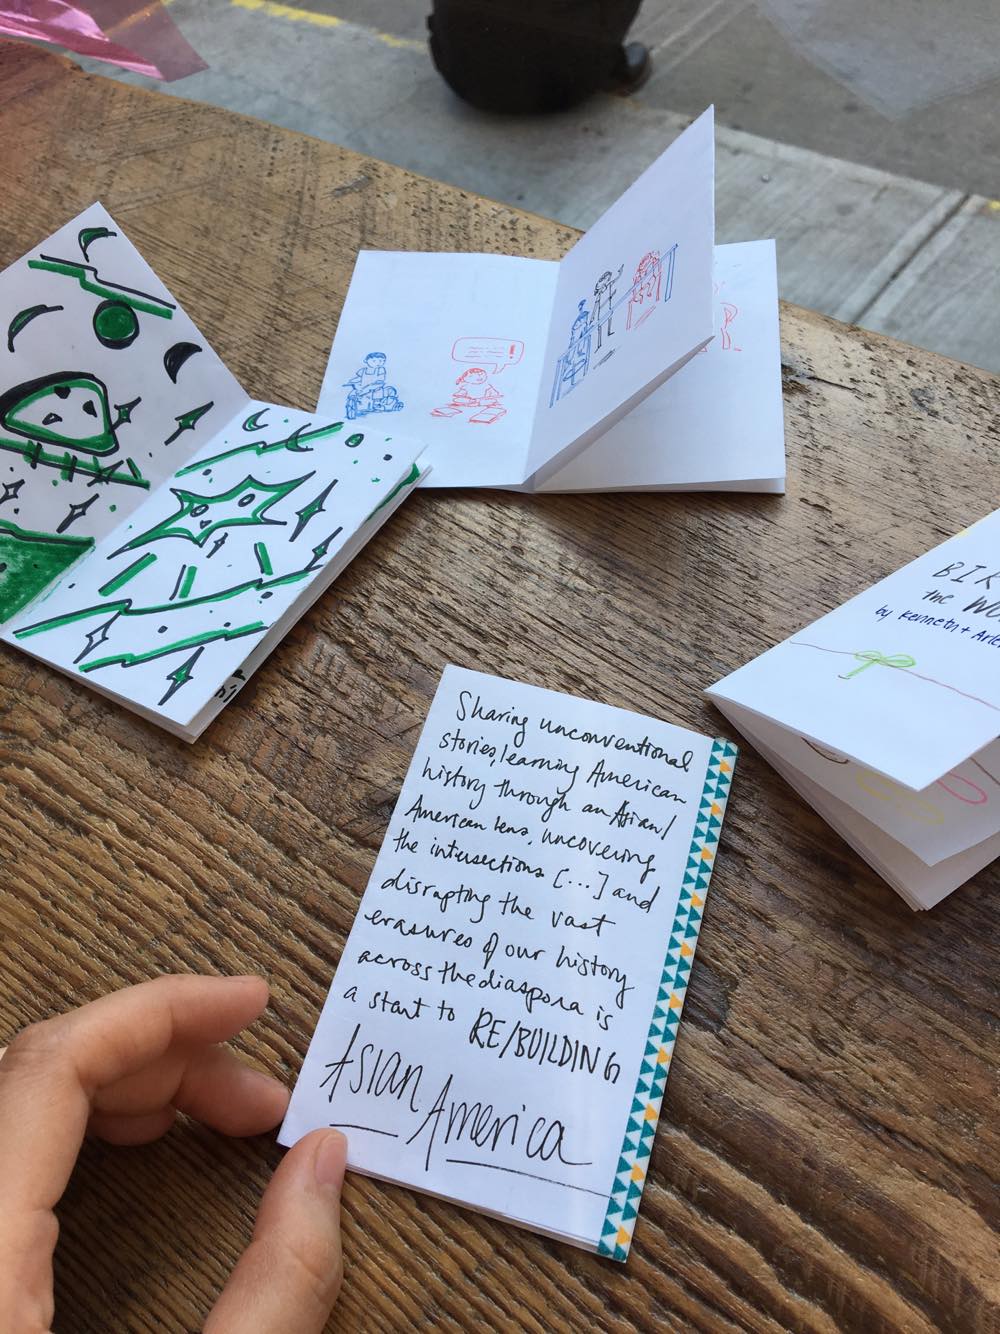 BIR
the WO
by Kenneth + Arle
Sharing unconventional
stories, learning American
history through an Asian/
American lens, uncovering
the intersections [...] and
disrupting the vast
erasures of our history
across the diaspora is
a start to RE/BUILDING
Asian America